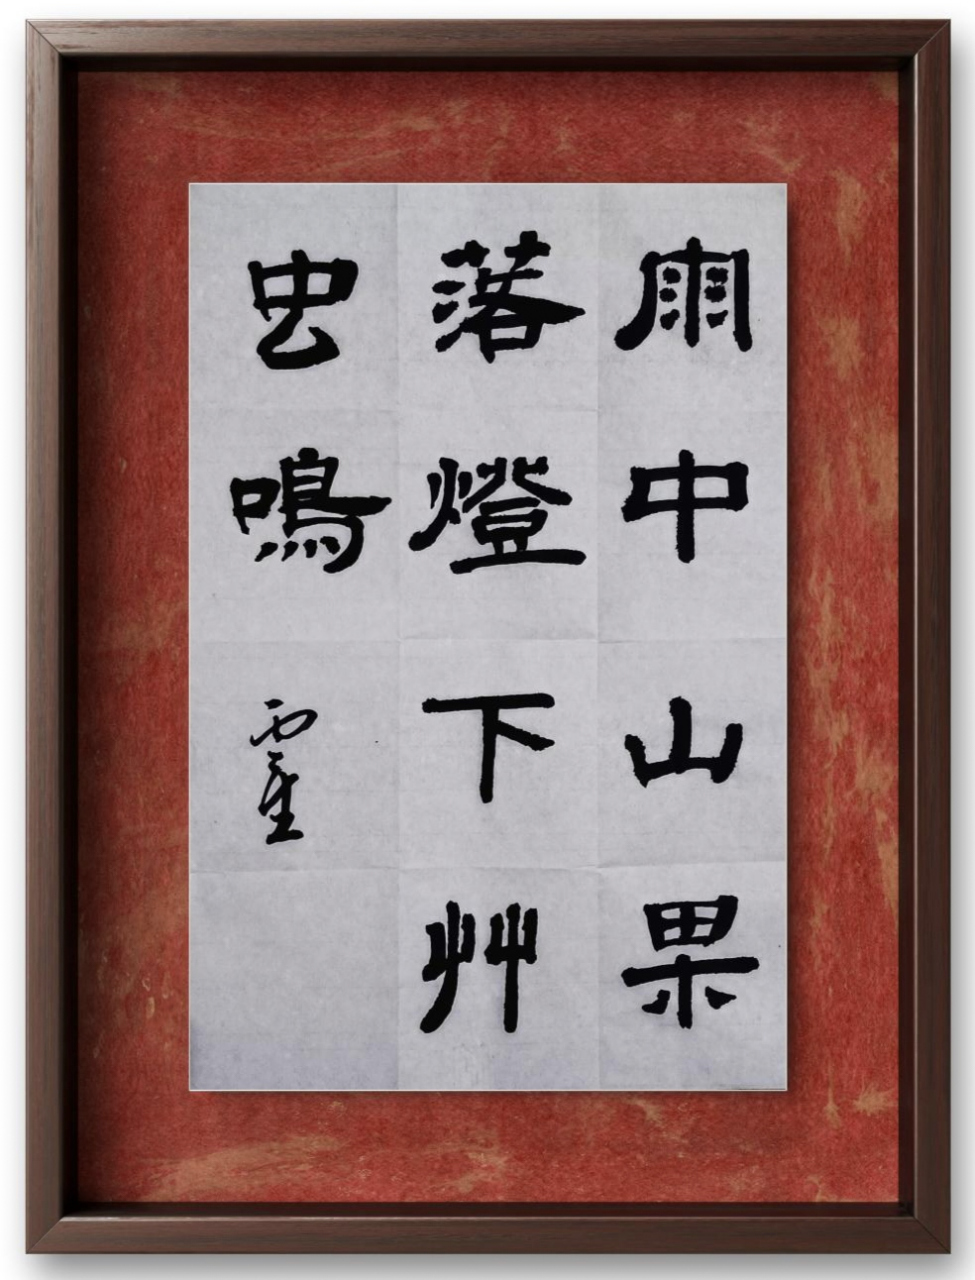 雨中山果
落燈下艸
虫鳴